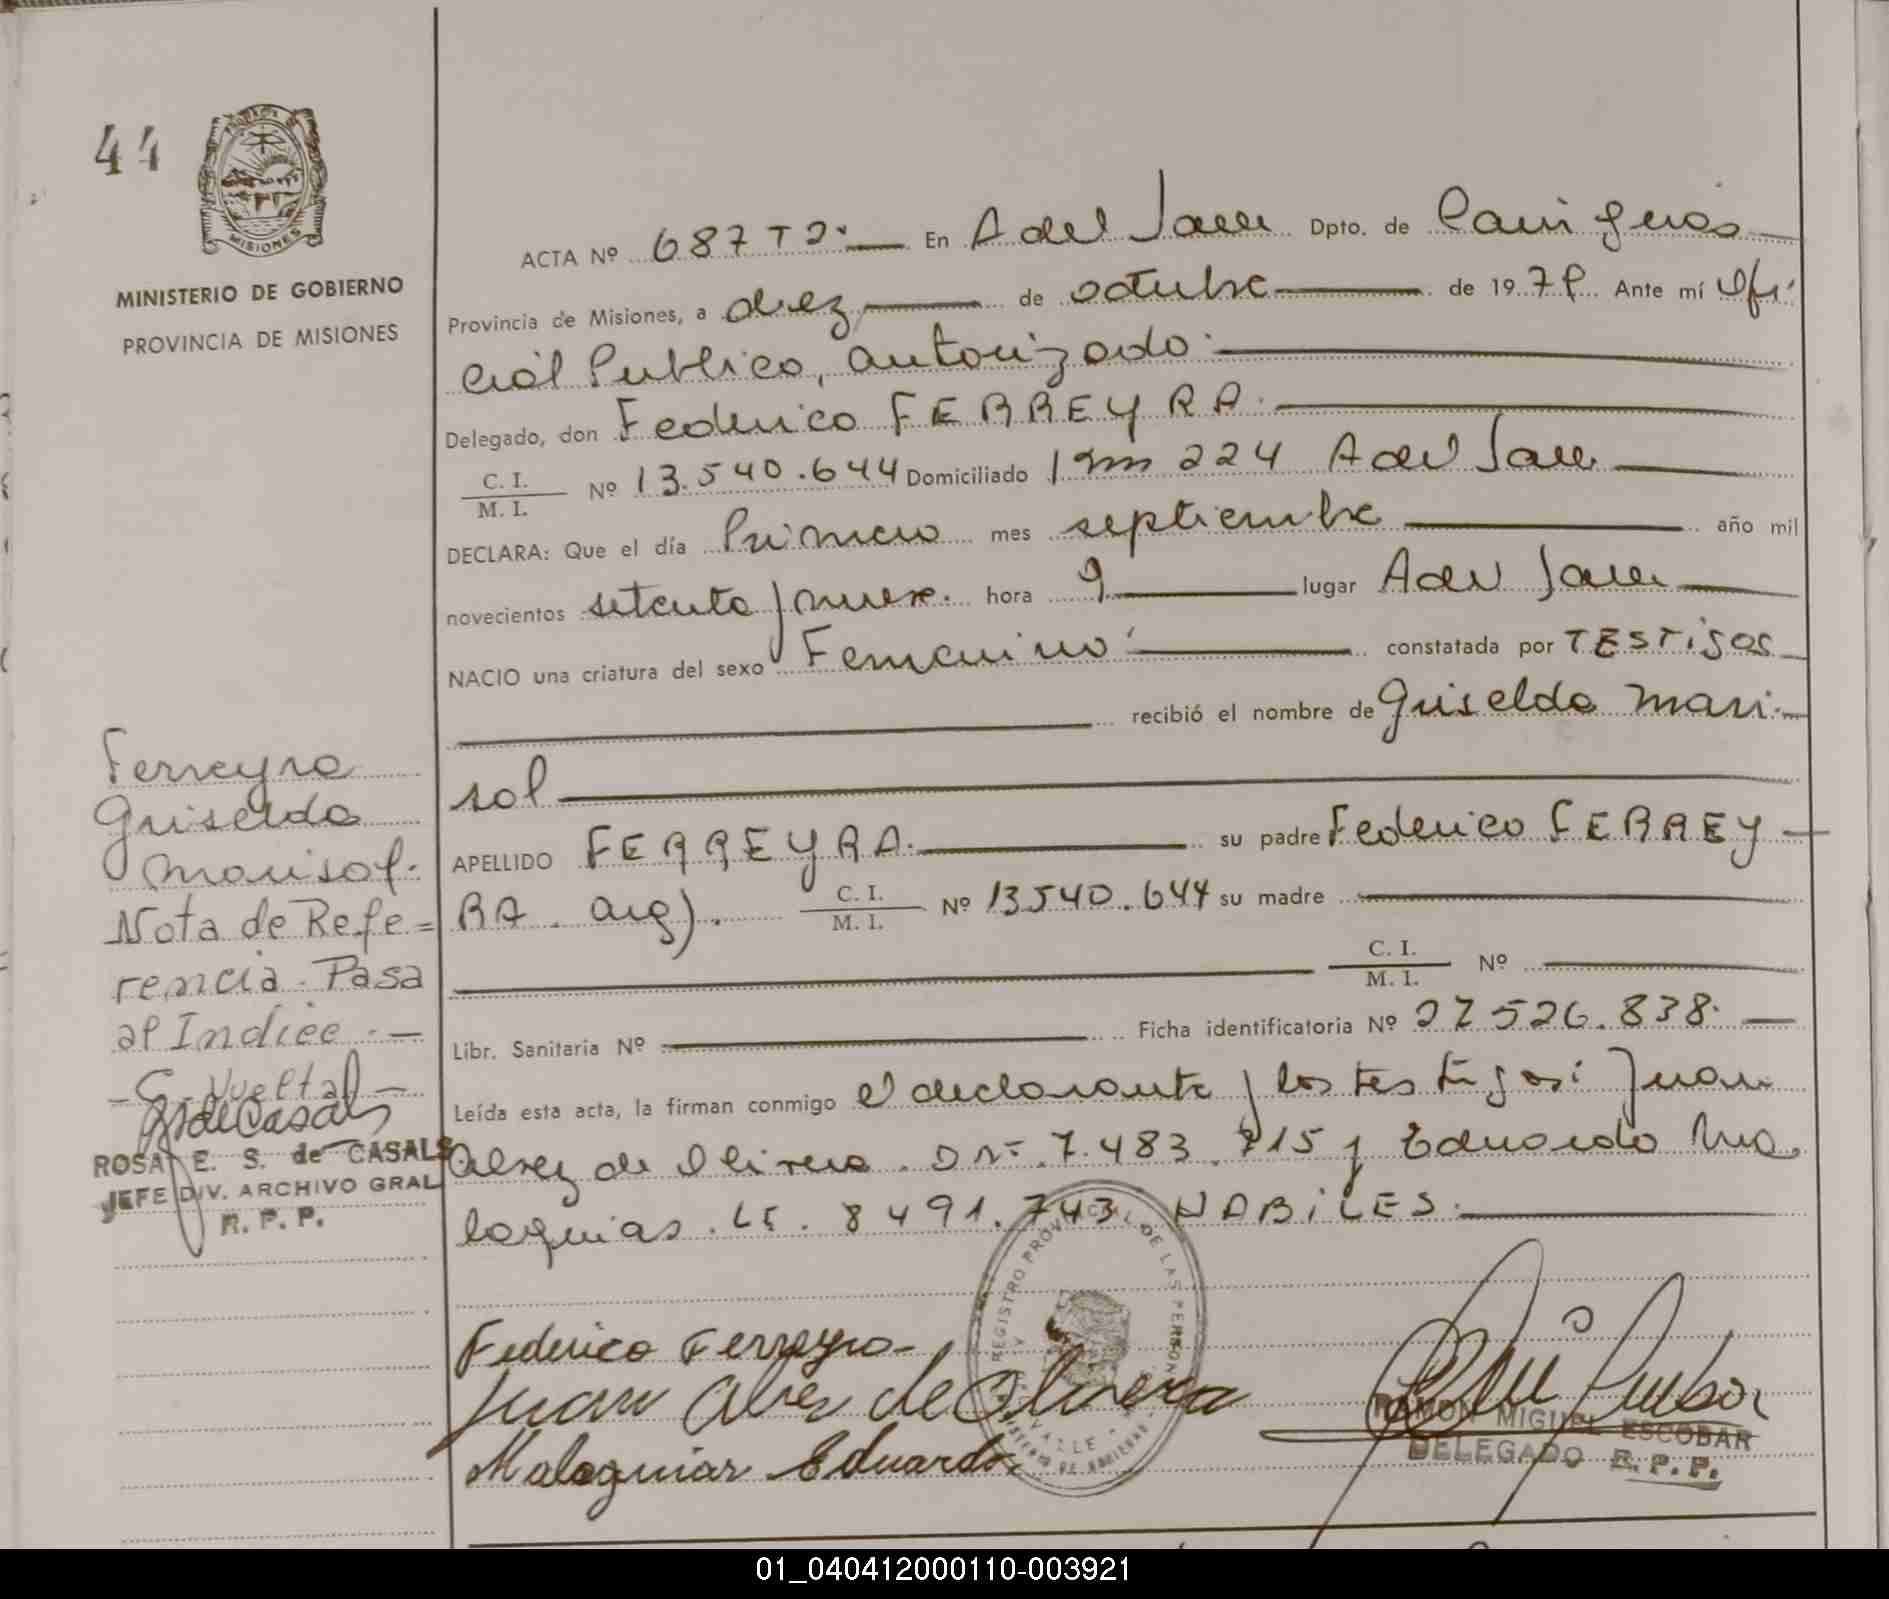 44
MISIONES
MINISTERIO DE GOBIERNO
PROVINCIA DE MISIONES
ACTA Nº 687 T 2. En A del Valle Dpto. de Cainguás
Provincia de Misiones, a diez de octubre de 1979. Ante mí Ofi
cial Publico, autorizado.
Delegado, don Federico FERREYRA.
C. I. / M. I. Nº 13.540.644 Domiciliado Km 224 A del Valle
DECLARA: Que el día Primero mes septiembre año mil
novecientos setenta y nueve. hora 9 lugar A del Valle
NACIO una criatura del sexo Femenino constatada por TESTiGOS
recibió el nombre de Griselda Mari
sol
APELLIDO FERREYRA. su padre Federico FERREY
RA. Arg). C. I. / M. I. Nº 13540.644 su madre
C. I. / M. I. Nº
Libr. Sanitaria Nº Ficha identificatoria Nº 27526.838.
Leída esta acta, la firman conmigo el declarante y los testigos: Juan
Alvez de Olivera. 7.483. y Eduardo Ma
laquias. LE. 8491.743 HABiLES.
Federico Ferreyra
Juan Alves de Olivera
Malaquias Eduardo
REGISTRO PROVINCIAL DE LAS PERSONAS
RAMON MIGUEL ESCOBAR
DELEGADO R.P.P.
Ferreyra
Griselda
Marisol.
Nota de Refe=
rencia. Pasa
al Indice.
Vuelta
ROSA E. S. de CASALS
JEFE DIV. ARCHIVO GRAL
R. P. P.
01_040412000110-003921